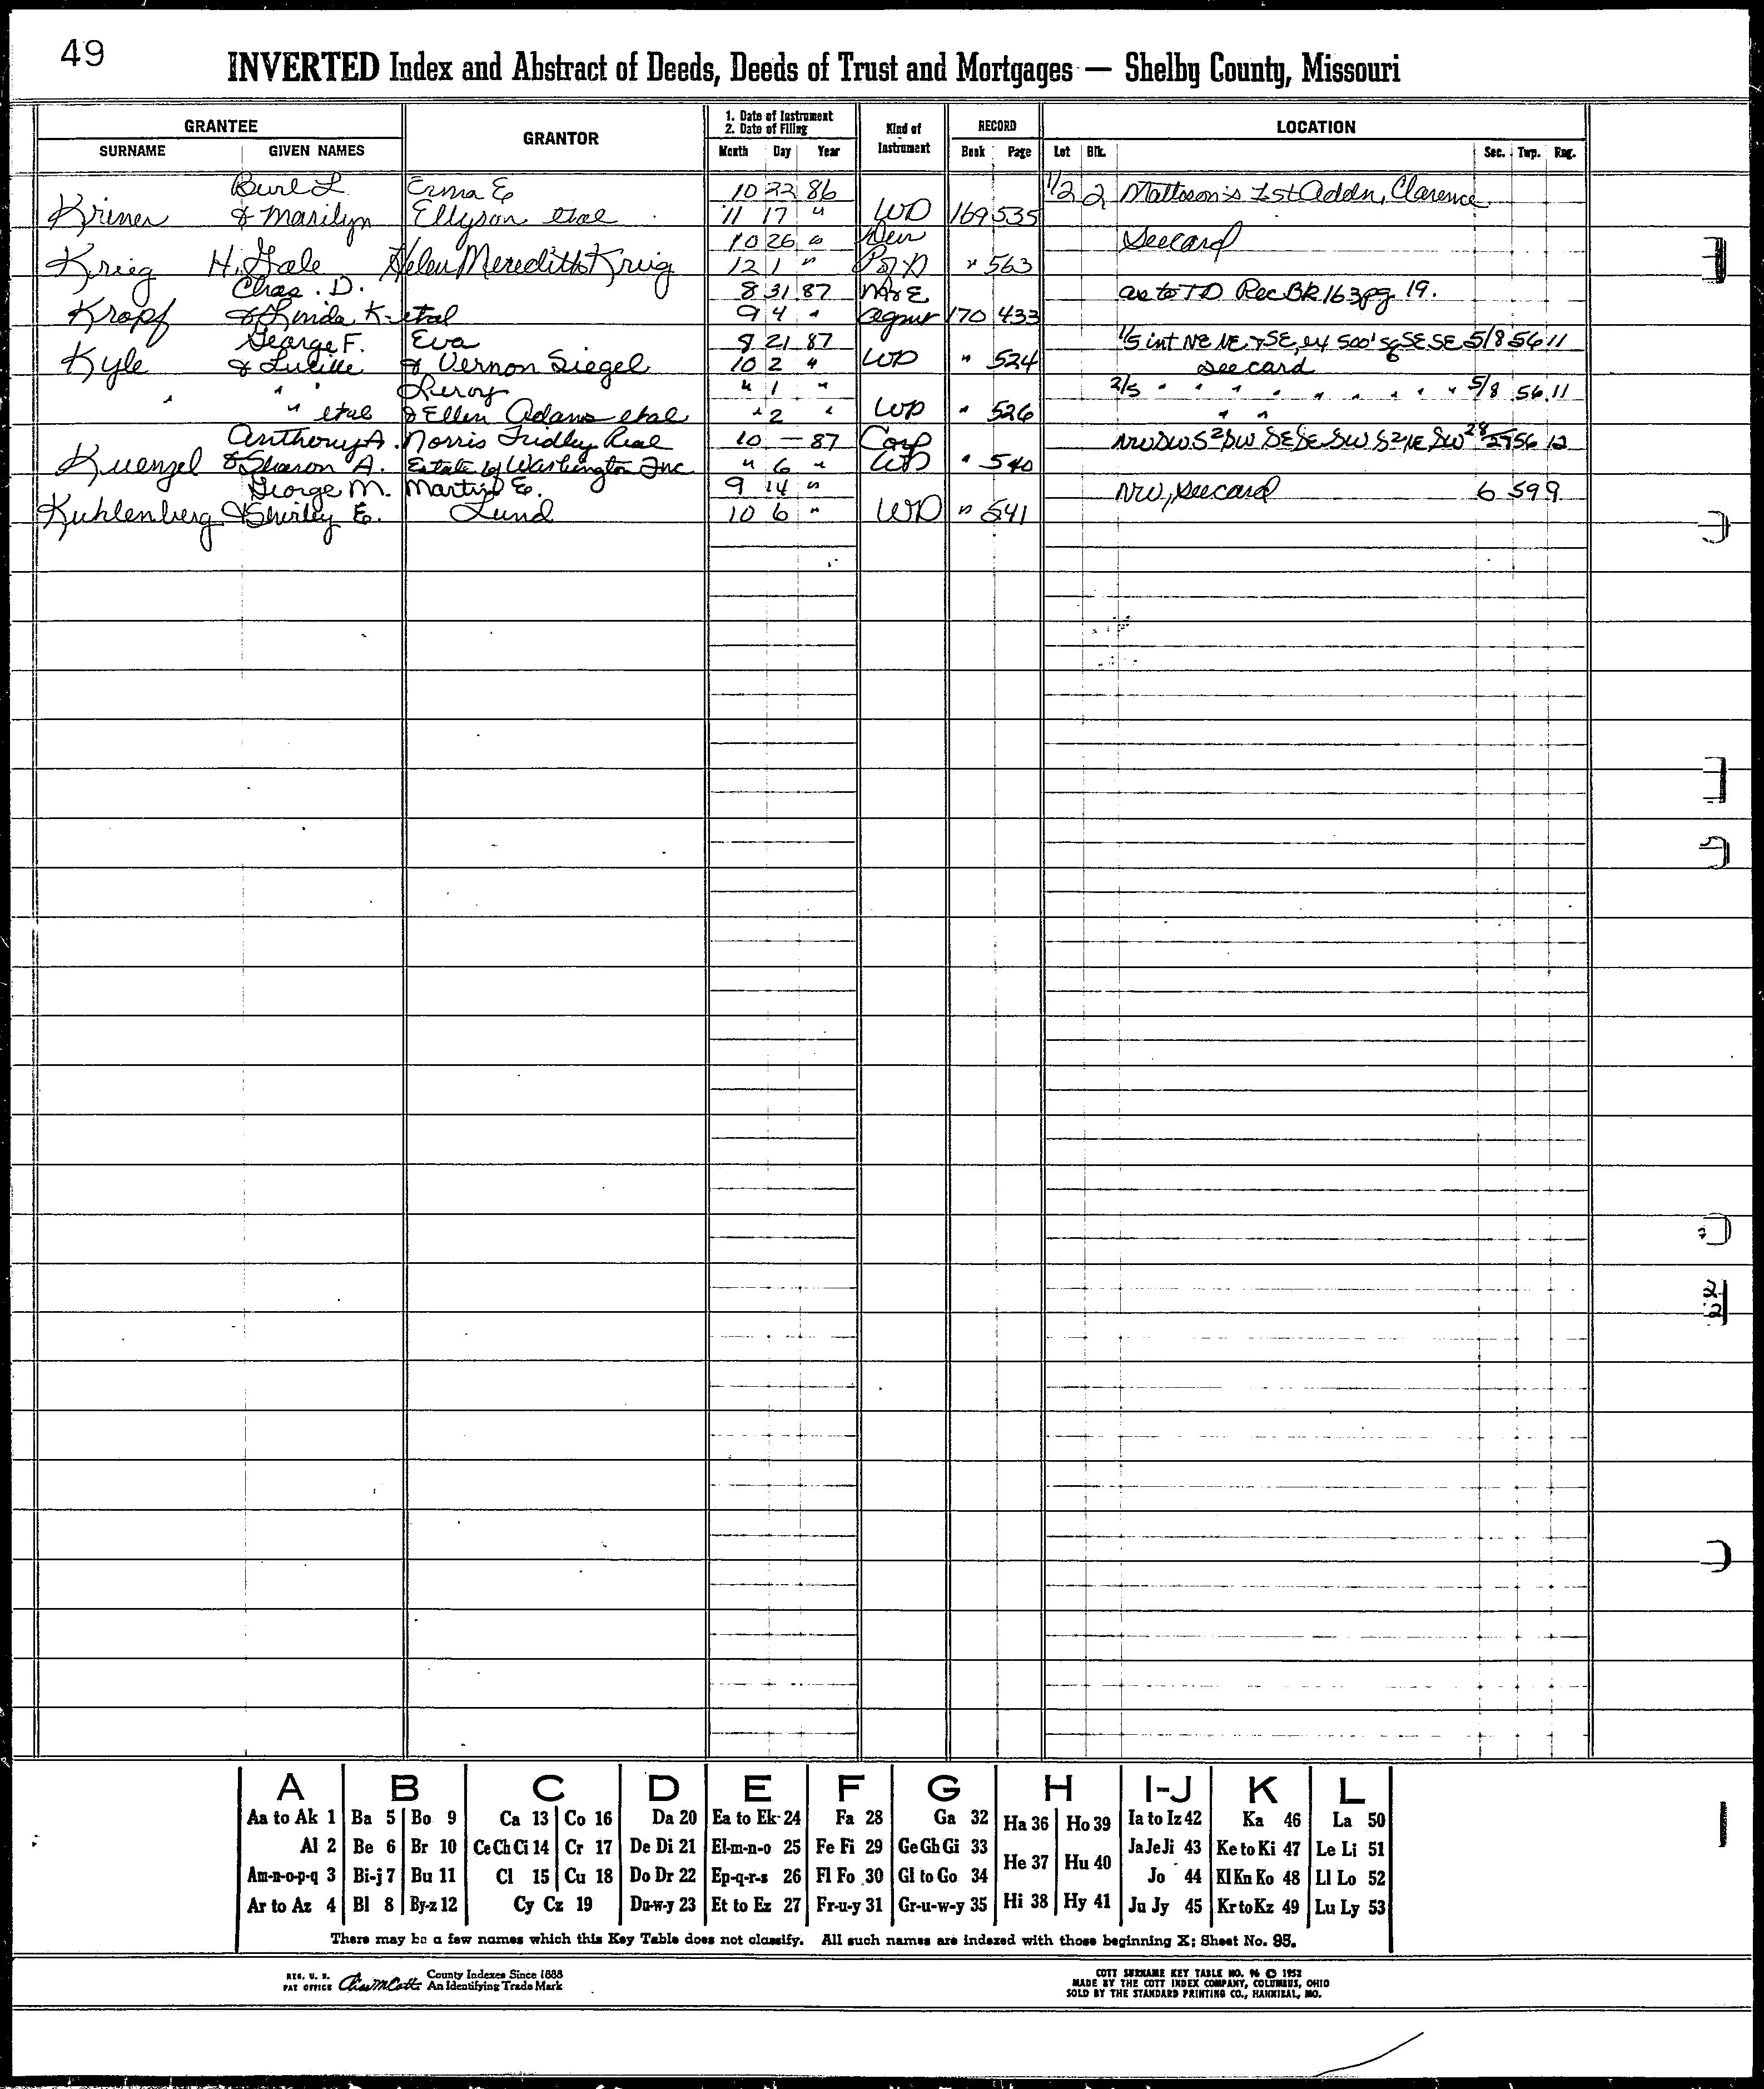 49
INVERTED Index and Abstract of Deeds, Deeds of Trust and Mortgages — Shelby County, Missouri
GRANTEE GRANTOR 1. Date of Instrument 2. Date of Filing Kind of Instrument RECORD LOCATION
SURNAME GIVEN NAMES Month Day Year Book Page Lot Blk. Sec. Twp. Rng.
Burl L. Erma E 10 22 86 1/2 2 Mattson's 1st Addn, Clarence
Kriner & Marilyn Ellyson etal 11 17 " WD 169 535
10 26 " See card
Krieg H. Gale Helen Meredith Krieg 12 1 " " 563
Chas. D. 8 31 87 M & E as to TD Rec BK 163 pg 19.
Kropf & Linda K etal 9 4 " Agmt 170 433
George F. Eva 8 21 87 1/5 int NE NE & SE, 500' SE SE 5/8 56 11
Kyle & Lucille & Vernon Siegel 10 2 " WD " 524 see card
" " Leroy " 1 " 2/5 " " " " " " " " 5/8 56 11
" " etal & Ellen Adams etal " 2 " WD " 526 " "
Anthony A. Norris Fridley Real 10 — 87 Corp NW SW S2 SW SE SE SW S2 NE SW 28 56 12
Kuenzel & Sharon A. Estate by Washington Inc " 6 " WD " 540
George M. Martin E. 9 14 " NW, see card 6 59 9
Kuhlenberg & Shirley E. Lund 10 6 " WD " 541
2
2
A B C D E F G H I-J K L
Aa to Ak 1 Ba 5 Bo 9 Ca 13 Co 16 Da 20 Ea to Ek 24 Fa 28 Ga 32 Ha 36 Ho 39 Ia to Iz 42 Ka 46 La 50
Al 2 Be 6 Br 10 Ce Ch Ci 14 Cr 17 De Di 21 El-m-n-o 25 Fe Fi 29 Ge Gh Gi 33 He 37 Hu 40 Ja Je Ji 43 Ke to Ki 47 Le Li 51
Am-n-o-p-q 3 Bi-j 7 Bu 11 Cl 15 Cu 18 Do Dr 22 Ep-q-r-s 26 Fl Fo 30 Gl to Go 34 Jo 44 Kl Kn Ko 48 Ll Lo 52
Ar to Az 4 Bl 8 By-z 12 Cy Cz 19 Du-w-y 23 Et to Ez 27 Fr-u-y 31 Gr-u-w-y 35 Hi 38 Hy 41 Ju Jy 45 Kr to Kz 49 Lu Ly 53
There may be a few names which this Key Table does not classify. All such names are indexed with those beginning X; Sheet No. 95.
REG. U. S. PAT OFFICE County Indexes Since 1888 An Identifying Trade Mark
COTT SURNAME KEY TABLE NO. 96 © 1952
MADE BY THE COTT INDEX COMPANY, COLUMBUS, OHIO
SOLD BY THE STANDARD PRINTING CO., HANNIBAL, MO.